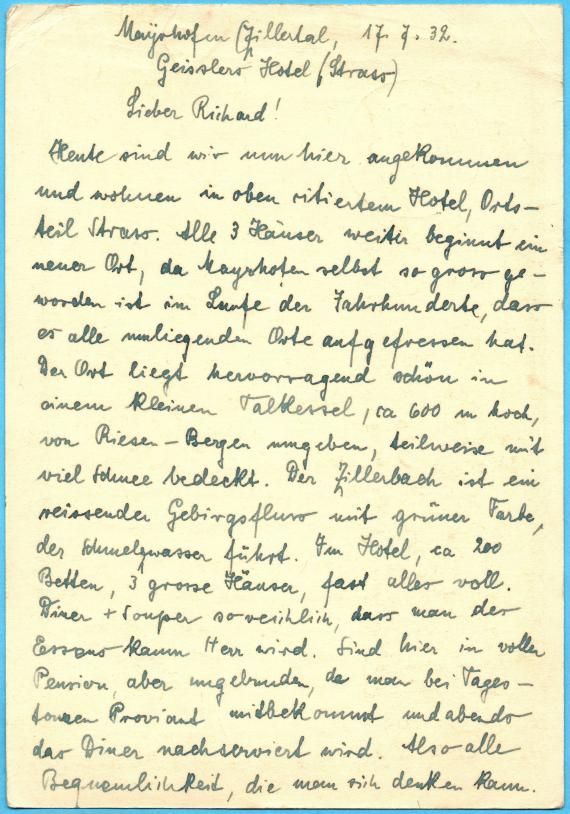 Mayrhofen (Zillertal, 17. 7. 32.
Geisslers Hotel (Strass)
Lieber Richard!
Heute sind wir nun hier angekommen
und wohnen in oben citiertem Hotel, Orts-
teil Strass. Alle 3 Häuser weiter beginnt ein
neuer Ort, da Mayrhofen selbst so gross ge-
worden ist im Laufe der Jahrhunderte, dass
es alle umliegenden Orte aufgefressen hat.
Der Ort liegt hervorragend schön in
einem kleinen Talkessel, ca 600 m hoch,
von Riesen-Bergen umgeben, teilweise mit
viel Schnee bedeckt. Der Zillerbach ist ein
reissender Gebirgsfluss mit grüner Farbe,
der Schmelzwasser führt. Im Hotel, ca 200
Betten, 3 grosse Häuser, fast alles voll.
Diner + Souper so reichlich, dass man des
Essens kaum Herr wird. Sind hier in voller
Pension, aber ungebunden, da man bei Tages-
touren Proviant mitbekommt und abends
das Diner nachserviert wird. Also alle
Bequemlichkeit, die man sich denken kann.